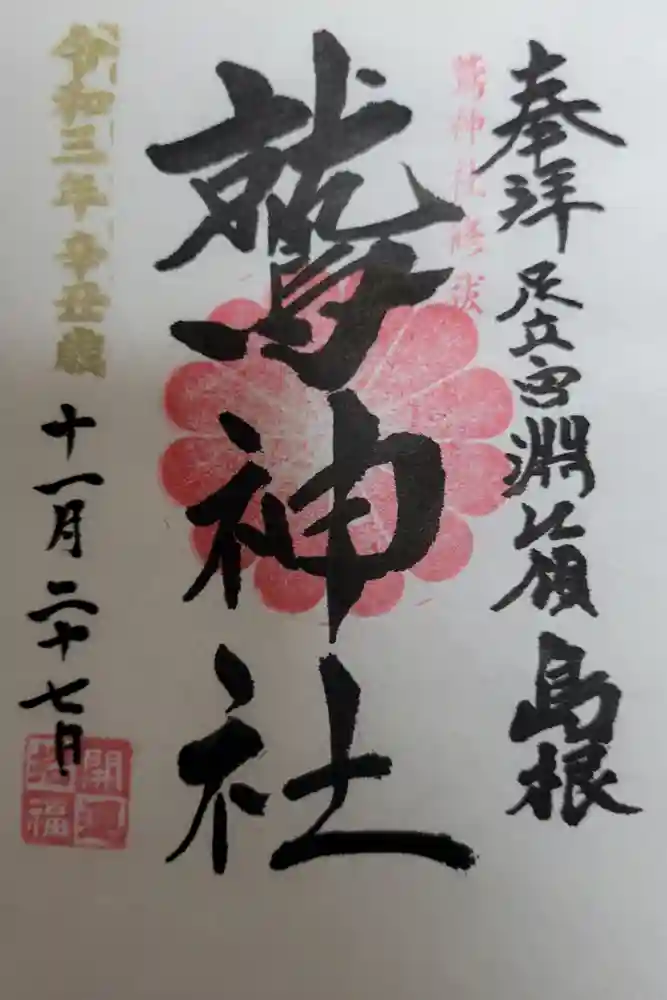 奉拝 足立宮淵江領 島根
鷲神社修祓
鷲神社
令和三年辛丑歳
十一月二十七日
開運
招福